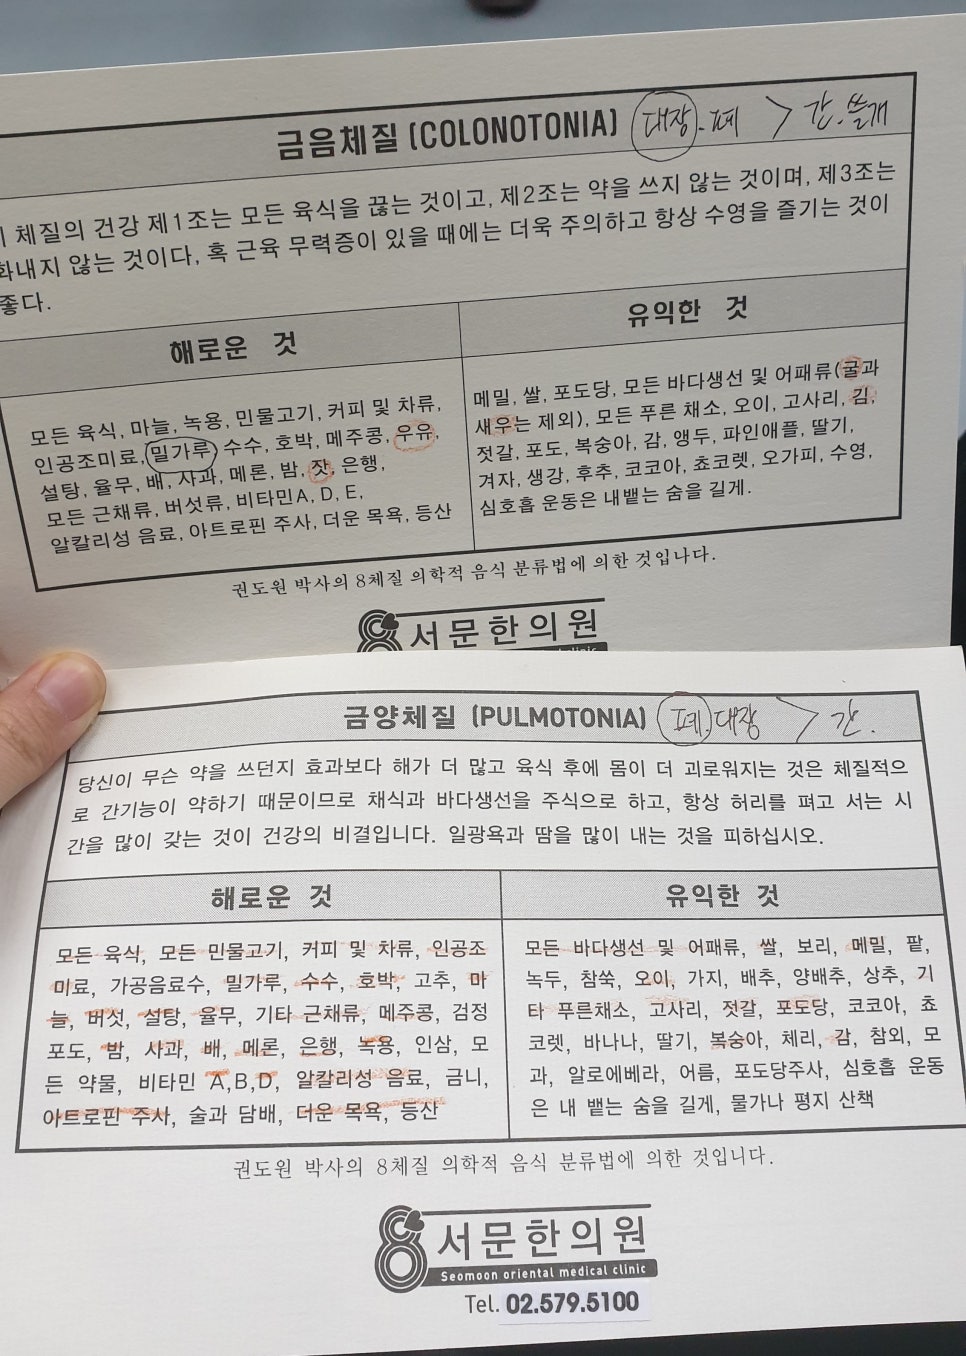 금음체질 (COLONOTONIA) 대장.폐 > 간.쓸개
체질의 건강 제1조는 모든 육식을 끊는 것이고, 제2조는 약을 쓰지 않는 것이며, 제3조는
화내지 않는 것이다, 혹 근육 무력증이 있을 때에는 더욱 주의하고 항상 수영을 즐기는 것이
좋다.
해로운 것
모든 육식, 마늘, 녹용, 민물고기, 커피 및 차류,
인공조미료, 밀가루, 수수, 호박, 메주콩, 우유,
설탕, 율무, 배, 사과, 메론, 밤, 잣, 은행,
모든 근채류, 버섯류, 비타민A, D, E,
알칼리성 음료, 아트로핀 주사, 더운 목욕, 등산
유익한 것
메밀, 쌀, 포도당, 모든 바다생선 및 어패류(굴과
새우는 제외), 모든 푸른 채소, 오이, 고사리, 김,
젓갈, 포도, 복숭아, 감, 앵두, 파인애플, 딸기,
겨자, 생강, 후추, 코코아, 쵸코렛, 오가피, 수영,
심호흡 운동은 내뱉는 숨을 길게.
권도원 박사의 8체질 의학적 음식 분류법에 의한 것입나다.
8 서문한의원
clinic
금양체질 (PULMOTONIA) 폐.대장 > 간.
당신이 무슨 약을 쓰던지 효과보다 해가 더 많고 육식 후에 몸이 더 괴로워지는 것은 체질적으
로 간기능이 약하기 때문이므로 채식과 바다생선을 주식으로 하고, 항상 허리를 펴고 서는 시
간을 많이 갖는 것이 건강의 비결입니다. 일광욕과 땀을 많이 내는 것을 피하십시오.
해로운 것
모든 육식, 모든 민물고기, 커피 및 차류, 인공조
미료, 가공음료수, 밀가루, 수수, 호박, 고추, 마
늘, 버섯, 설탕, 율무, 기타 근채류, 메주콩, 검정
포도, 밤, 사과, 배, 메론, 은행, 녹용, 인삼, 모
든 약물, 비타민 A,B,D, 알칼리성 음료, 금니,
아트로핀 주사, 술과 담배, 더운 목욕, 등산
유익한 것
모든 바다생선 및 어패류, 쌀, 보리, 메밀, 팥,
녹두, 참쑥, 오이, 가지, 배추, 양배추, 상추, 기
타 푸른채소, 고사리, 젓갈, 포도당, 코코아, 쵸
코렛, 바나나, 딸기, 복숭아, 체리, 감, 참외, 모
과, 알로에베라, 어름, 포도당주사, 심호흡 운동
은 내 뱉는 숨을 길게, 물가나 평지 산책
권도원 박사의 8체질 의학적 음식 분류법에 의한 것입니다.
8 서문한의원
Seomoon oriental medical clinic
Tel. 02.579.5100